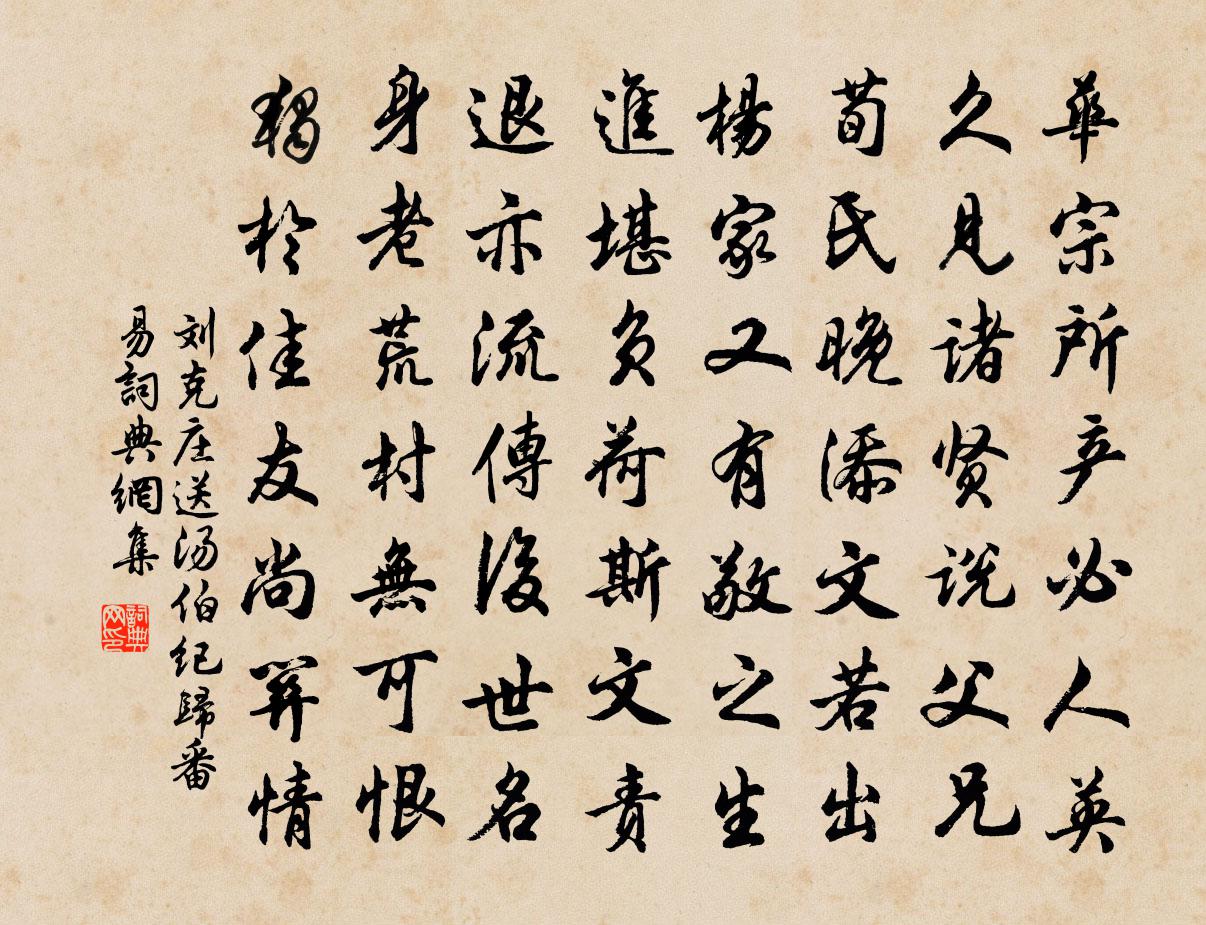 華宗所产必人英
久见诸贤说父兄
荀氏晚添文若出
楊家又有敬之生
進堪负荷斯文责
退亦流傳後世名
身老荒村無可恨
獨於佳友尚關情
刘克庄送汤伯纪歸番
易詞典網集
詞典网印